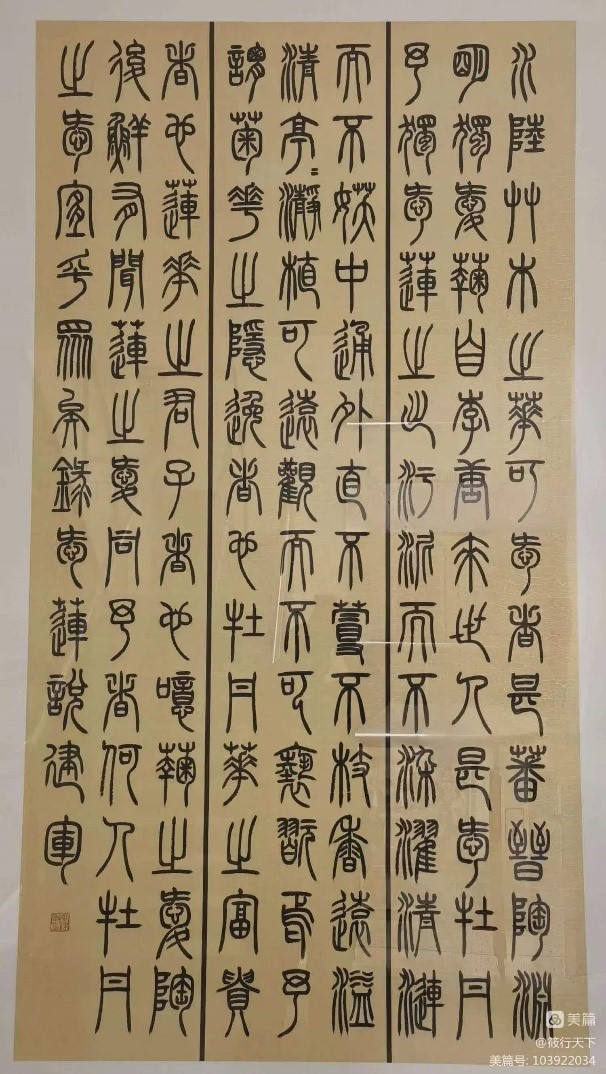 水陸艸木之華可愛者甚蕃晉陶淵
明獨愛鞠自李唐來世人甚愛牡丹
予獨愛蓮之出汙泥而不染濯清漣
而不媖中通外直不蔓不枝香遠溢
清亭〻瀞植可遠觀而不可褻翫焉予
謂菊華之隱逸者也牡丹華之富貴
者也蓮華之君子者也噫鞠之愛陶
後鮮有聞蓮之愛同予者何人牡丹
之愛宜乎眾矣錄愛蓮說建軍
美篇
@筱行天下
美篇号: 103922034